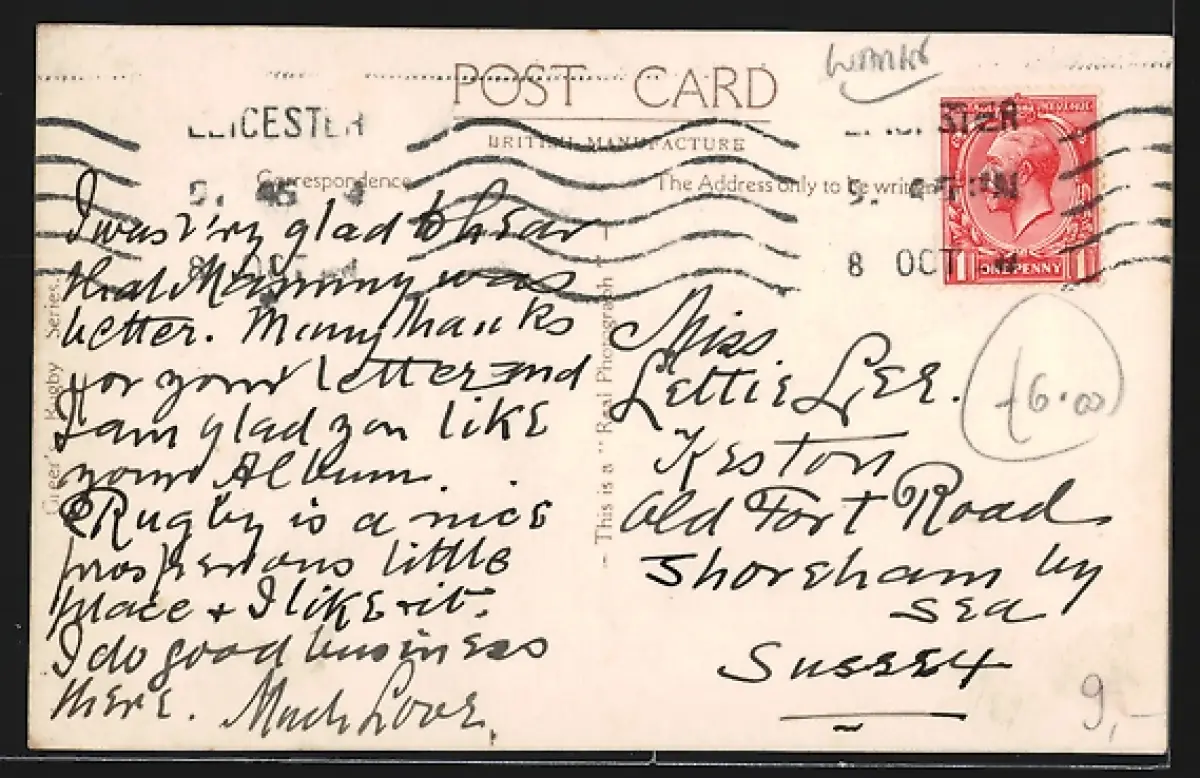 Warks
POST CARD
BRITISH MANUFACTURE
LEICESTER
LEICESTER
Correspondence
The Address only to be written
8 OCT
8 OCT
ONE PENNY
1 1
I was very glad to hear
that Mammy was
better. Many thanks
for your letter and
I am glad you like
your Album.
Rugby is a nice
prosperous little
place + I like it.
I do good business
there. Much Love.
Greer's Rugby Series.
This is a "Real Photograph"
Miss.
Lettie Lee.
Keston
Old Fort Road
Shoreham by
Sea
Sussex
£6.00
9,-